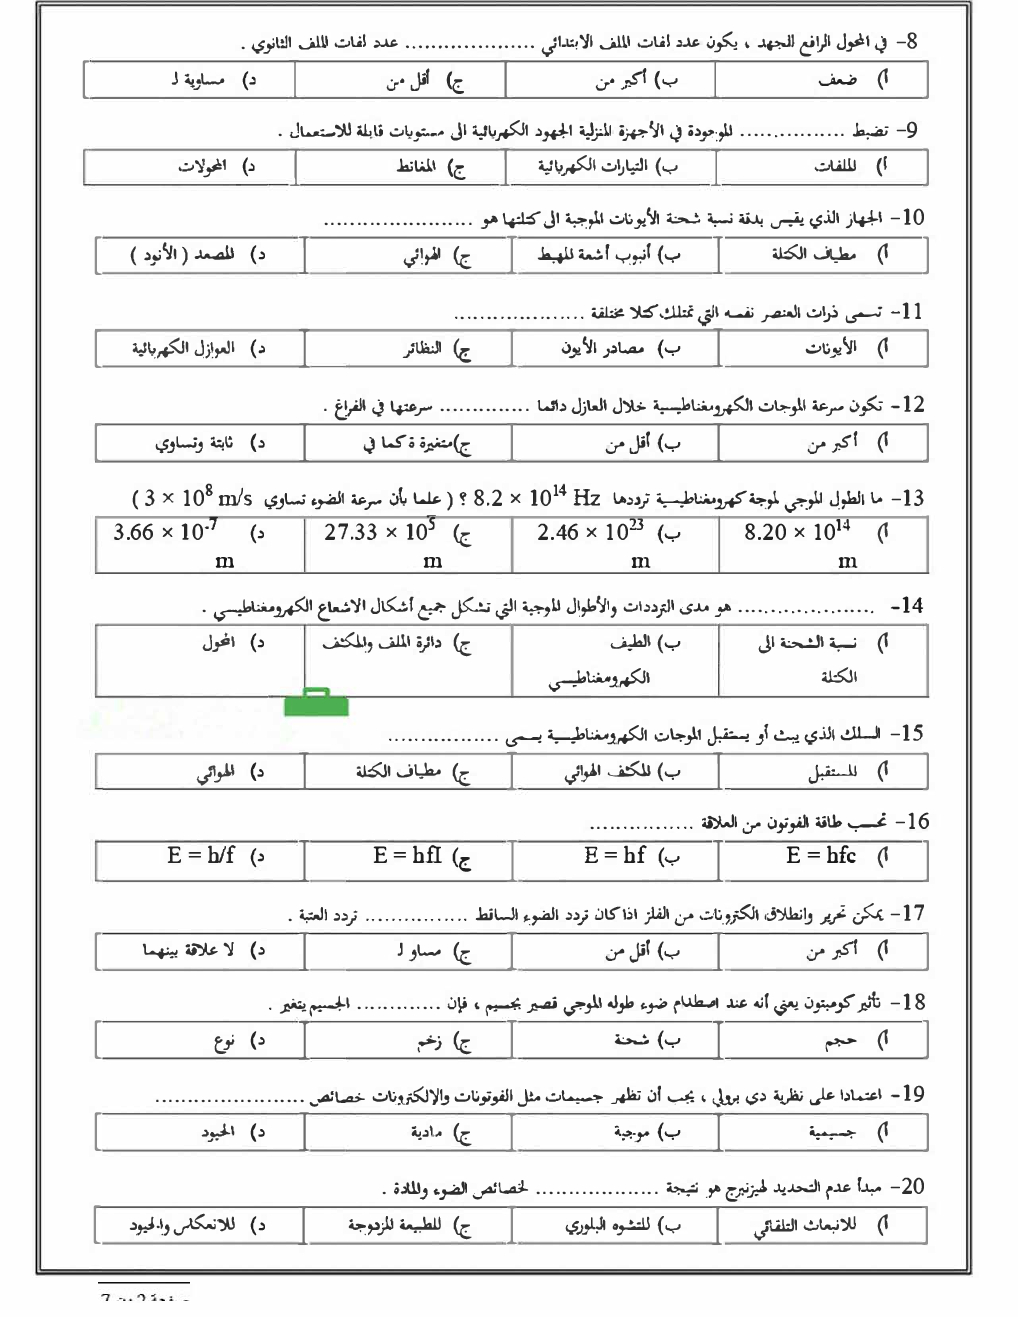 8- في المحول الرافع للجهد ، يكون عدد لفات الملف الابتدائي .................... عدد لفات الملف الثانوي .
أ) ضعف ب) أكبر من ج) أقل من د) مساوية لـ
9- تضبط ................ الموجودة في الأجهزة المنزلية الجهود الكهربائية الى مستويات قابلة للاستعمال .
أ) الملفات ب) التيارات الكهربائية ج) المغانط د) المحولات
10- الجهاز الذي يقيس بدقة نسبة شحنة الأيونات الموجبة الى كتلتها هو .......................
أ) مطياف الكتلة ب) أنبوب أشعة المهبط ج) الهوائي د) المصعد ( الأنود )
11- تسمى ذرات العنصر نفسه التي تمتلك كتلا مختلفة ....................
أ) الأيونات ب) مصادر الأيون ج) النظائر د) العوازل الكهربائية
12- تكون سرعة الموجات الكهرومغناطيسية خلال العازل دائما .............. سرعتها في الفراغ .
أ) أكبر من ب) أقل من ج)متغيرة ة كما في د) ثابتة وتساوي
13- ما الطول الموجي لموجة كهرومغناطيسية ترددها 8.2 × 10¹⁴ Hz ؟ ( علما بأن سرعة الضوء تساوي 3 × 10⁸ m/s )
أ) 8.20 × 10¹⁴ ب) 2.46 × 10²³ ج) 27.33 × 10⁵ د) 3.66 × 10⁻⁷
m m m m
14- ..................... هو مدى الترددات والأطوال الموجية التي تشكل جميع أشكال الاشعاع الكهرومغناطيسي .
أ) نسبة الشحنة الى ب) الطيف ج) دائرة الملف والمكثف د) المحول
الكتلة الكهرومغناطيسي
15- السلك الذي يبث أو يستقبل الموجات الكهرومغناطيسية يسمى .................
أ) المستقبل ب) المكثف الهوائي ج) مطياف الكتلة د) الهوائي
16- تحسب طاقة الفوتون من العلاقة ................
أ) E = hfc ب) E = hf ج) E = hfI د) E = h/f
17- يمكن تحرير وانطلاق الكترونات من الفلز اذا كان تردد الضوء الساقط ................ تردد العتبة .
أ) أكبر من ب) أقل من ج) مساو لـ د) لا علاقة بينهما
18- تأثير كومبتون يعني أنه عند اصطدام ضوء طوله الموجي قصير بجسيم ، فإن ............. الجسيم يتغير .
أ) حجم ب) شحنة ج) زخم د) نوع
19- اعتمادا على نظرية دي برولي ، يجب أن تظهر جسيمات مثل الفوتونات والإلكترونات خصائص .......................
أ) جسيمية ب) موجية ج) مادية د) الحيود
20- مبدأ عدم التحديد لهيزنبرج هو نتيجة ................... لخصائص الضوء والمادة .
أ) للانبعاث التلقائي ب) للتشوه البلوري ج) للطبيعة المزدوجة د) للانعكاس والحيود
صفحة 2 من 7